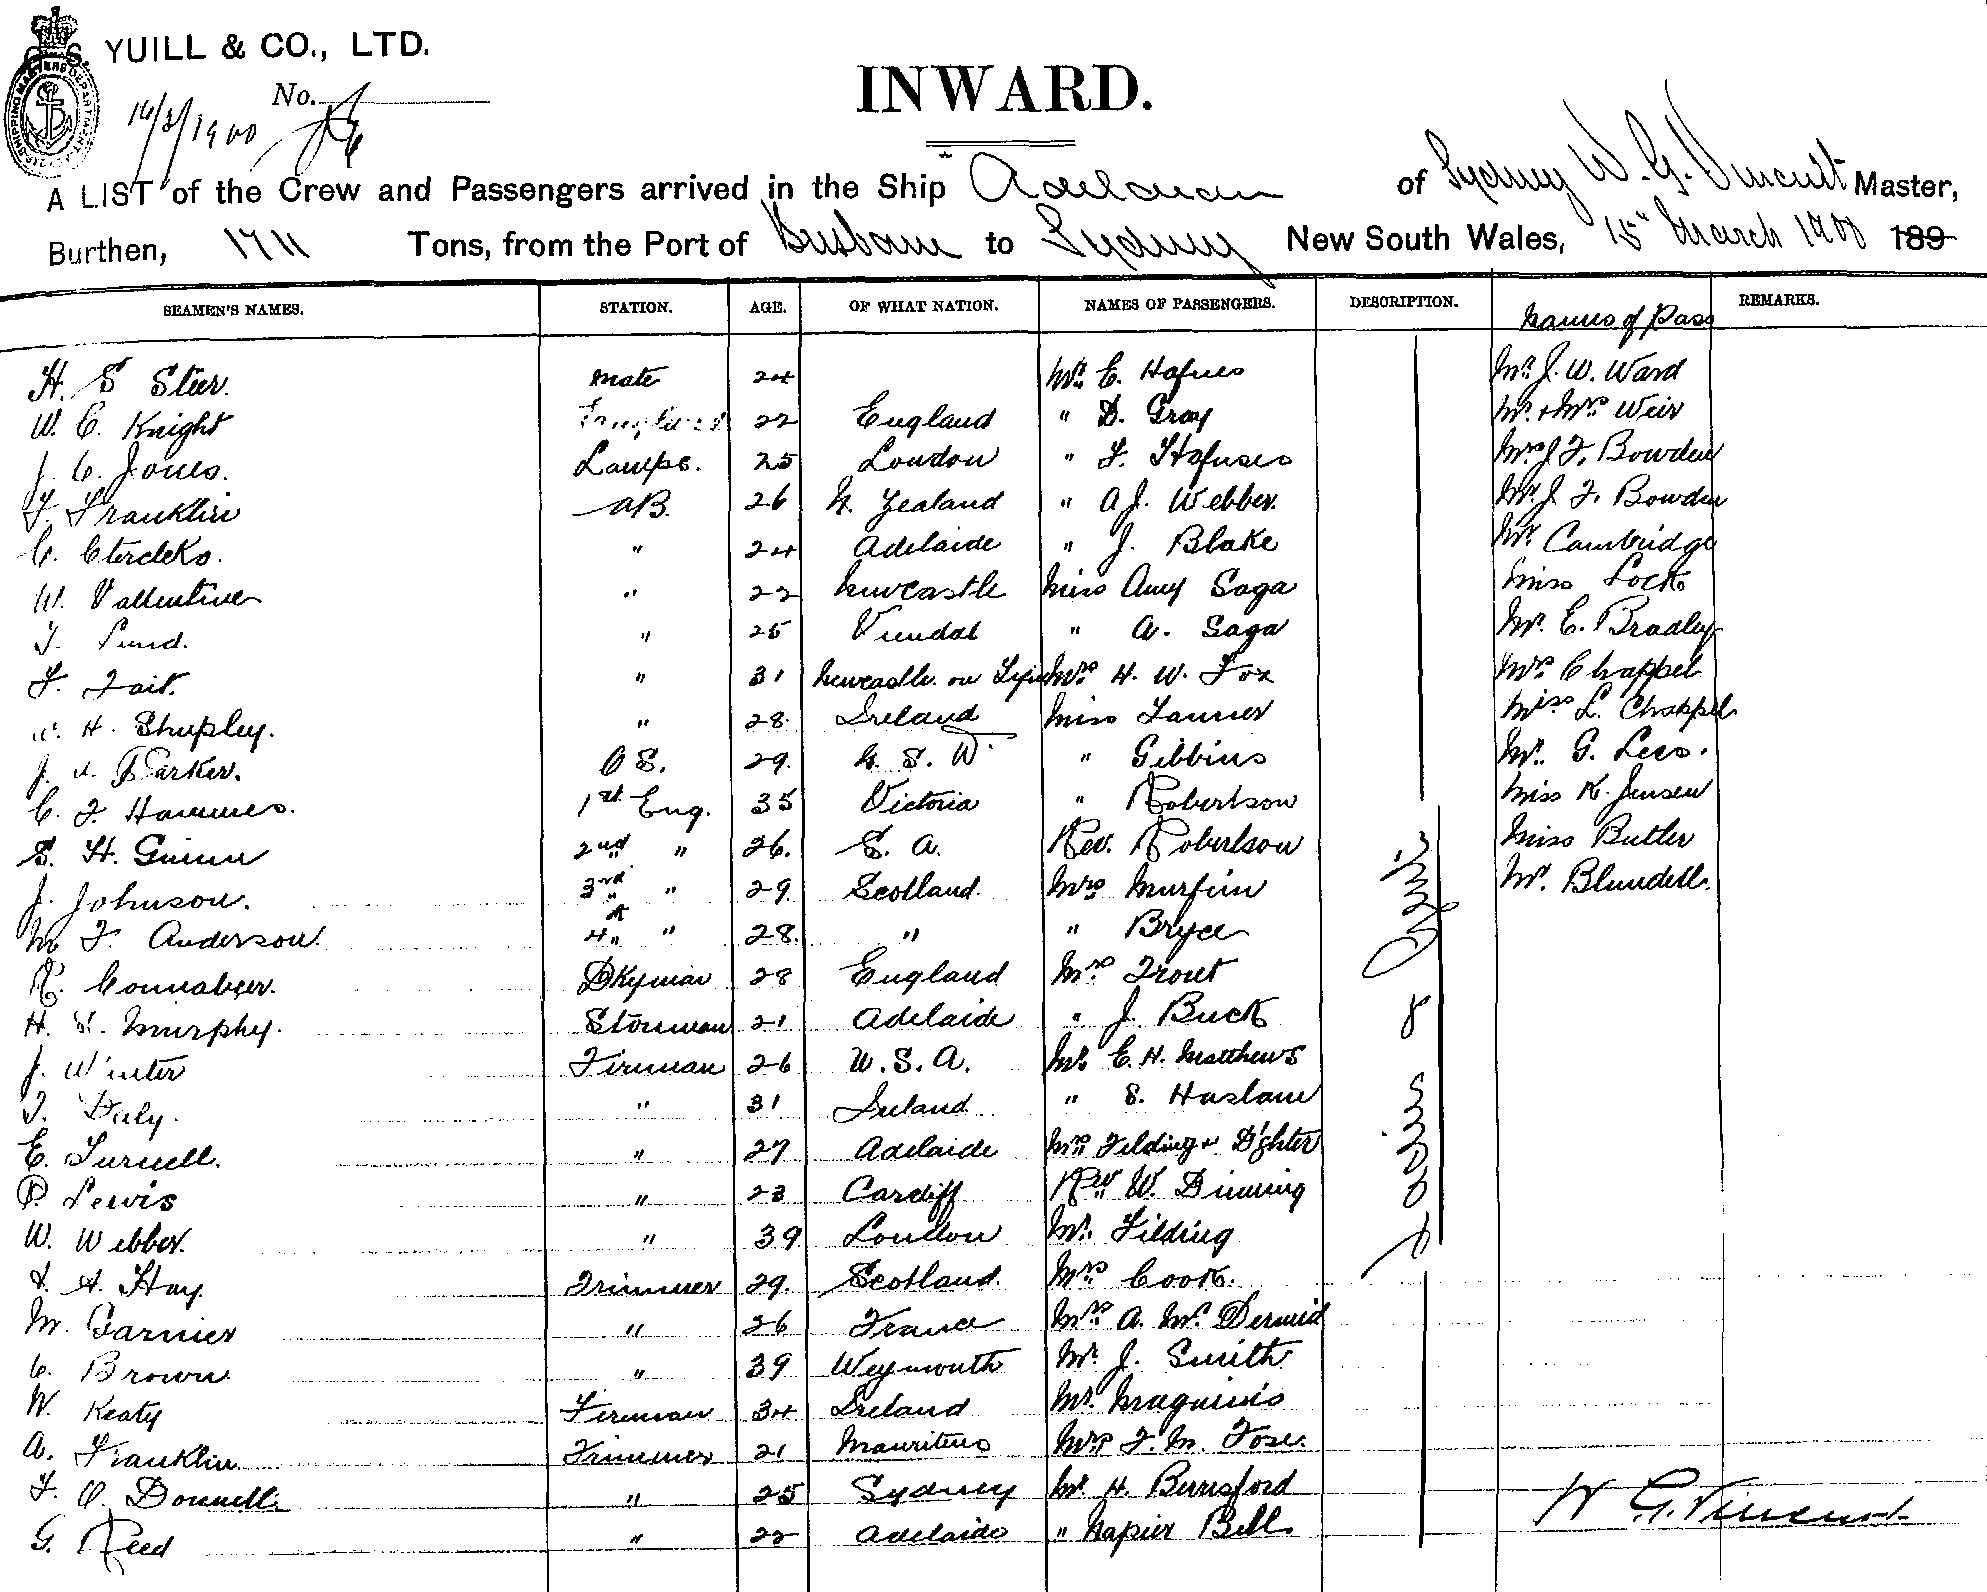 YUILL & CO., LTD.
No.
16/3/1900
INWARD.
A LIST of the Crew and Passengers arrived in the Ship "Adelaide of Sydney W. G. Vincent Master,
Burthen, 1711 Tons, from the Port of Brisbane to Sydney New South Wales, 15" March 1900 189
SEAMEN'S NAMES. STATION. AGE. OF WHAT NATION. NAMES OF PASSENGERS. DESCRIPTION. Names of Pass REMARKS.
H. S Steer. Mate 24 Mr. E. Hafues Mr. J. W. Ward
W. C. Knight 22 England " D. Gray Mr. + Mrs Weir
J. C. Jones. Lamps. 25 London " F. Hafuses Mrs J. F. Bowden
F. Franklin AB. 26 N. Zealand " A J. Webber Mr. J. F. Bowden
C. " 24 Adelaide " J. Blake Mr. Cambridge
W. Vallentine " 22 Newcastle Miss Amy Saga Miss Lock
T. Lund. " 25 " A. Saga Mr. E. Bradley
F. Tait. " 31 Newcastle on Tyne Mrs H. W. Fox Mrs Chappel
H. Shupley. " 28. Ireland Miss Tanner Miss L. Chappel
J. Parker. OS. 29. N. S. W. " Gibbins Mr. G. Lees.
C. F. Hammes. 1st Eng. 35 Victoria " Robertson Miss K. Jensen
S. H. Gunn 2nd " 26. S. A. Rev. Robertson Miss Butler
J. Johnson. 3rd " 29. Scotland. Mrs Murfin Mr. Blundell.
M F. Anderson. 4th " 28. " " Bryce
R. Connabeer. Dkyman 28 England Mrs Trout
H. Murphy. Storeman 21 Adelaide " J. Buck
J. Winter Fireman 26 U. S. A. Mr. E. H. Matthews
T. Daly. " 31 Ireland " S. Haslam
E. Turnell. " 27 Adelaide Mrs Filding + D'ghter
P. Lewis " 23 Cardiff Rev W. Dinning
W. Webber. " 39 London Mr. Filding
A. Hay. Trimmer 29. Scotland. Mrs Cook.
M. Garnier " 26 France Mrs A. McDermid
C. Brown " 39 Weymouth Mr. J. Smith
W. Keaty Fireman 34 Ireland Mr. Maguinis
A. Franklin Trimmer 21 Mauritius Mrs F. M. Fose.
F. O Donnell. " 25 Sydney Mr. H. Burnsford
G. Reed " 22 Adelaide " Napier Bell.
W G. Vincent